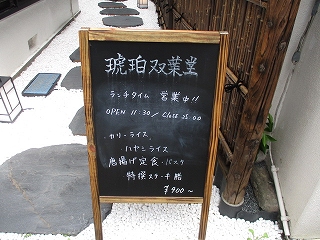 琥珀双葉堂
ランチタイム 営業中!!
OPEN 11:30 / Close 25:00
カリーライス
・ハヤシライス
唐揚げ定食・パスタ
特撰ステーキ膳
¥900～